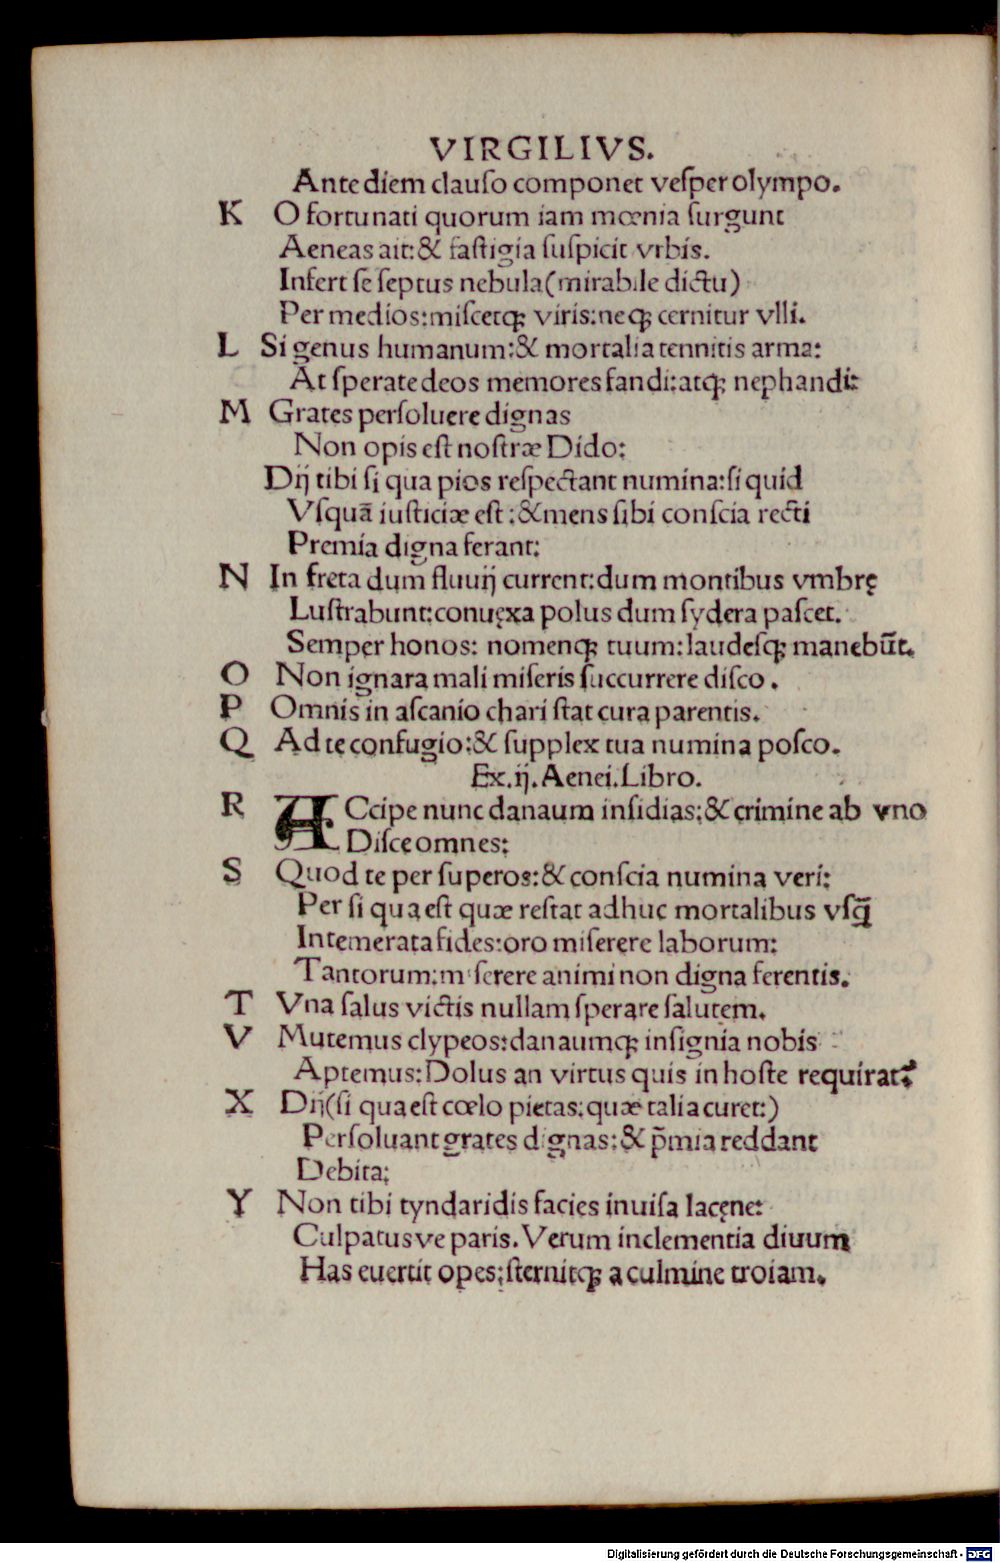 VIRGILIVS.
Ante diem clauſo componet veſper olympo.
K O fortunati quorum iam mœnia ſurgunt
Aeneas ait:& faſtigia ſuſpicit vrbis.
Infert ſe ſeptus nebula(mirabile dictu)
Per medios:miſcetqꝫ viris:neqꝫ cernitur vlli.
L Si genus humanum:& mortalia tennitis arma:
At ſperate deos memores fandi:atqꝫ nephandi:
M Grates perſoluere dignas
Non opis eſt noſtræ Dido:
Dij tibi ſi qua pios reſpectant numina:ſi quid
Vſquā iuſticiæ eſt:&mens ſibi conſcia recti
Premia digna ferant:
N In freta dum fluuij current:dum montibus vmbrę
Luſtrabunt:conuęxa polus dum ſydera paſcet.
Semper honos: nomenqꝫ tuum:laudeſqꝫ manebūt.
O Non ignara mali miſeris ſuccurrere diſco.
P Omnis in aſcanio chari ſtat cura parentis.
Q Ad te confugio:& ſupplex tua numina poſco.
Ex.ij.Aenei.Libro.
R ACcipe nunc danaum inſidias:& crimine ab vno
Diſce omnes:
S Quod te per ſuperos:& conſcia numina veri:
Per ſi qua eſt quæ reſtat adhuc mortalibus vſq̄
Intemerata fides:oro miſerere laborum:
Tantorum:miſerere animi non digna ferentis.
T Vna ſalus victis nullam ſperare ſalutem.
V Mutemus clypeos:danaumqꝫ inſignia nobis
Aptemus:Dolus an virtus quis in hoſte requirat?
X Dij(ſi qua eſt cœlo pietas:quæ talia curet:)
Perſoluant grates dignas:& p̄mia reddant
Debita:
Y Non tibi tyndaridis facies inuiſa lacęne:
Culpatus ve paris.Verum inclementia diuum
Has euertit opes:ſternitqꝫ a culmine troiam.
Digitalisierung gefördert durch die Deutsche Forschungsgemeinschaft - DFG